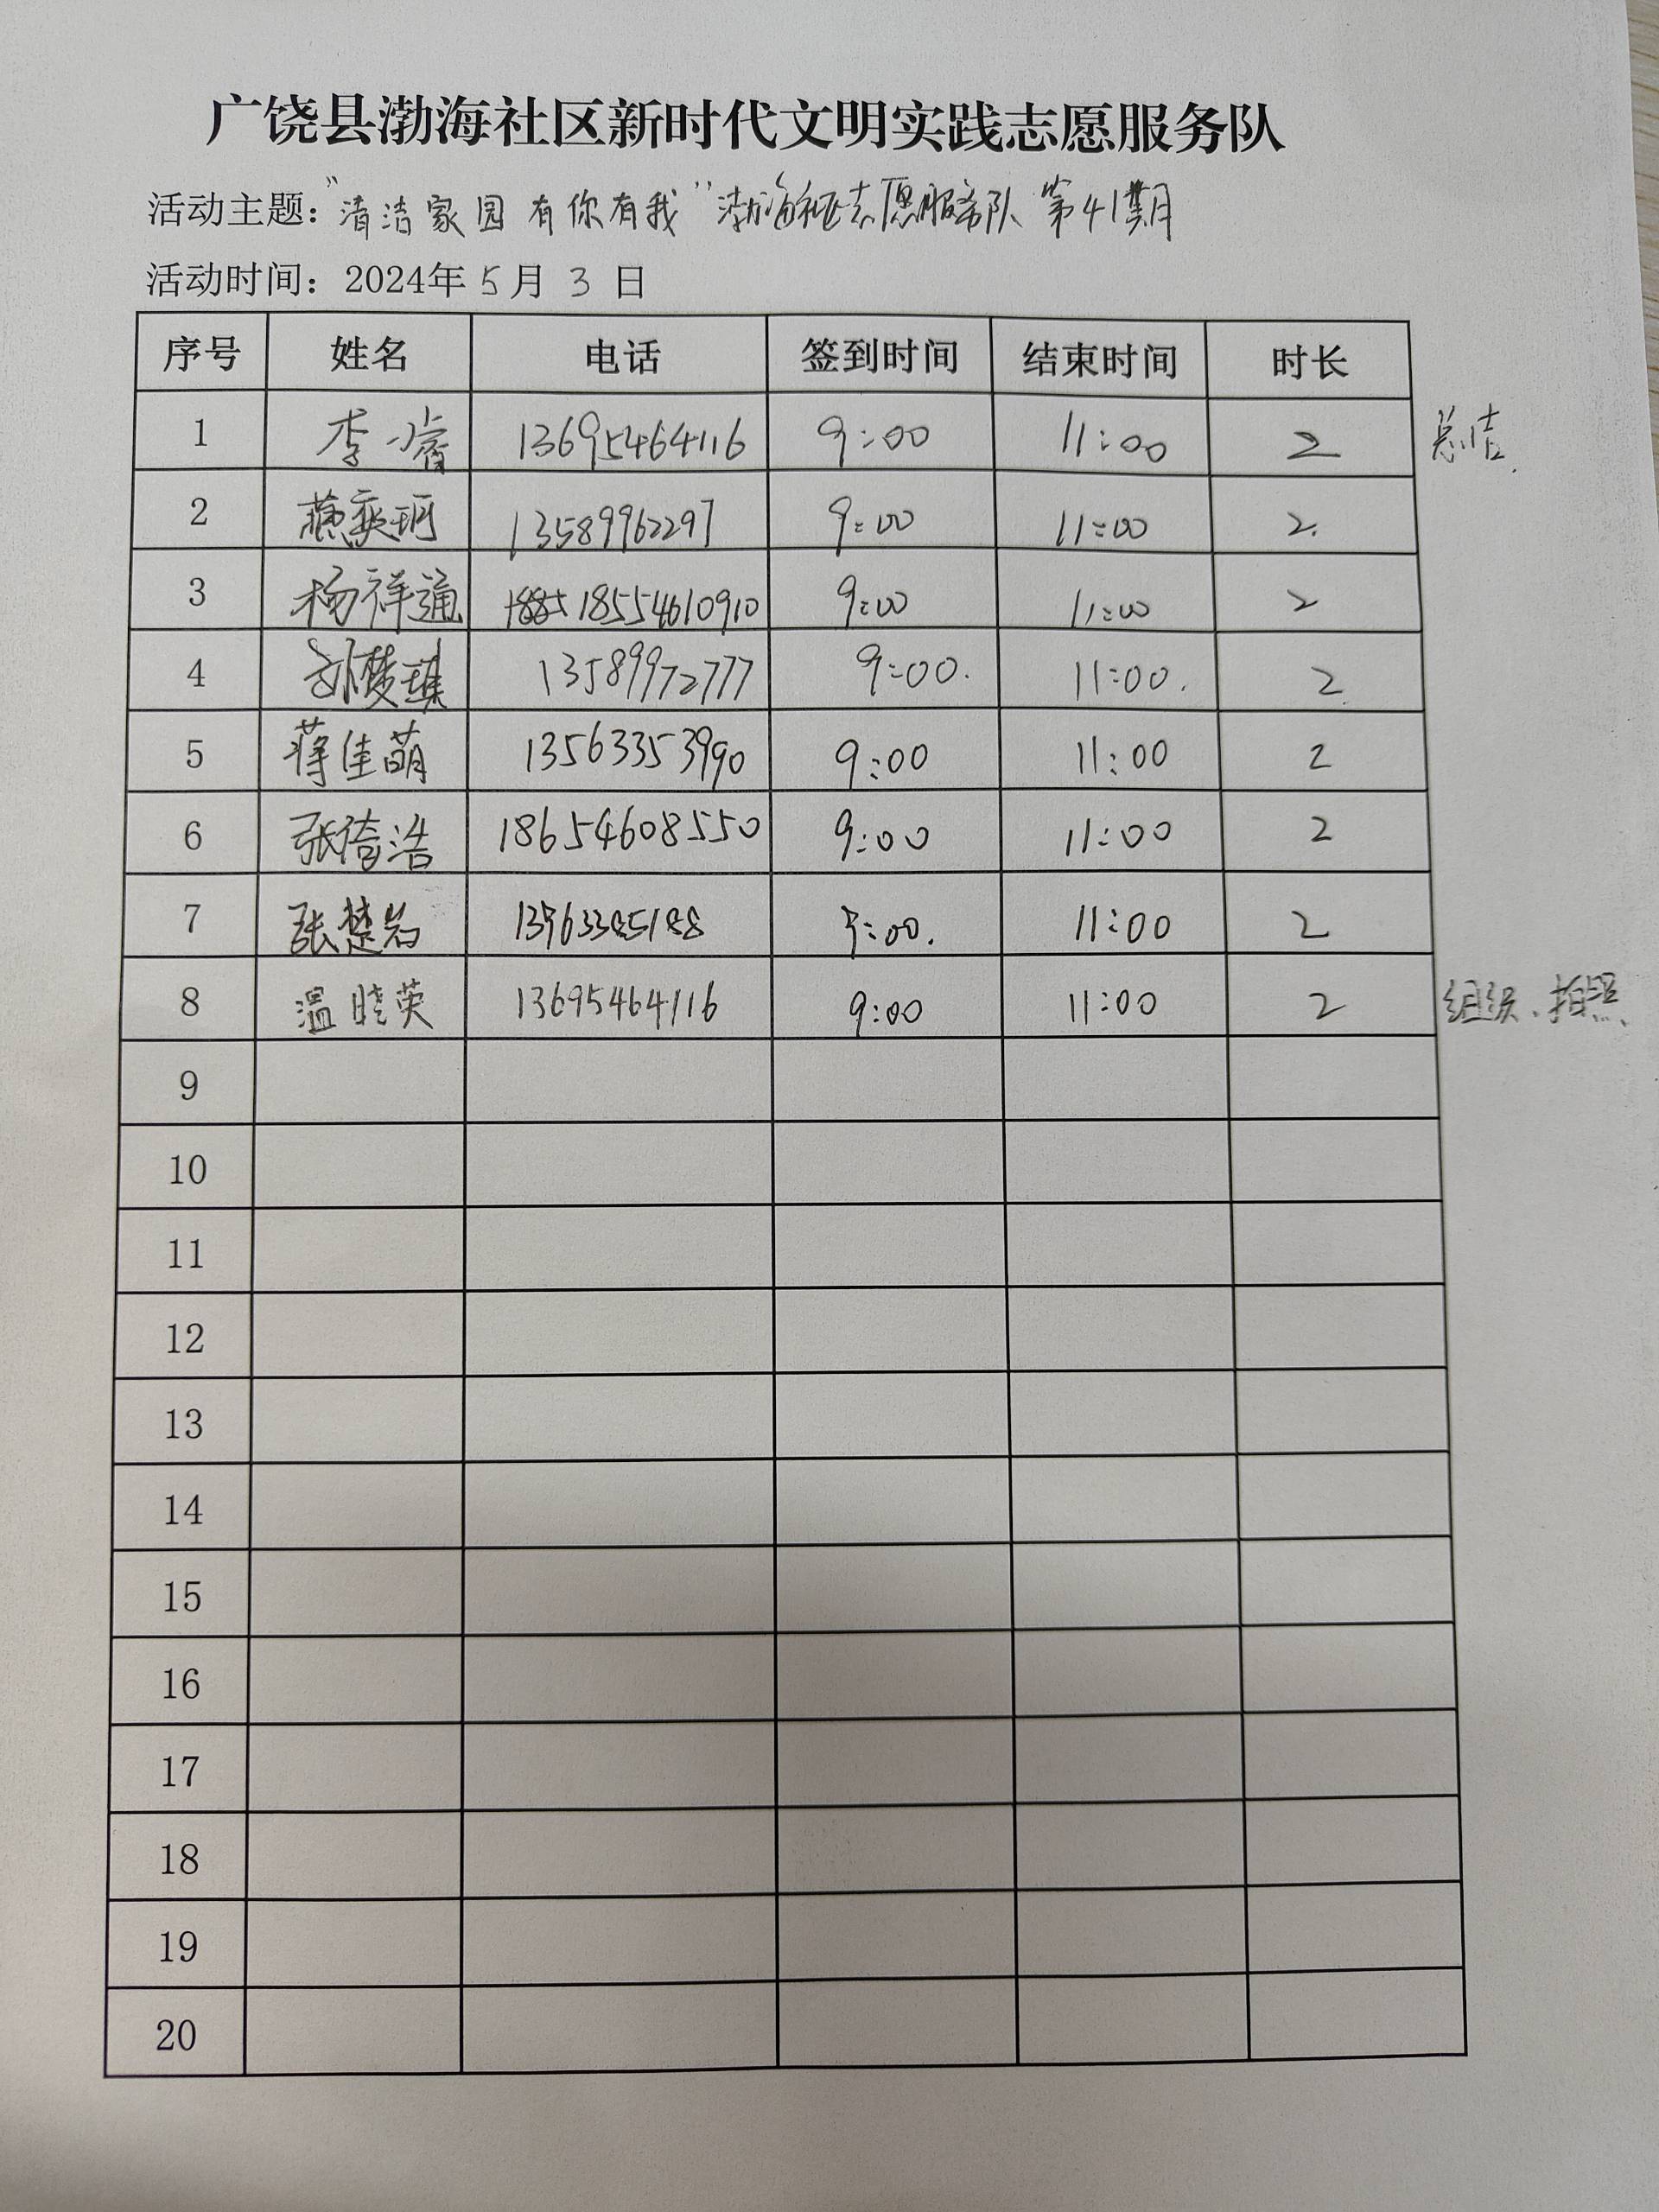 广饶县渤海社区新时代文明实践志愿服务队
活动主题：“清洁家园 有你有我”渤海社区志愿服务队 第41期
活动时间：2024年 5 月 3 日
序号 姓名 电话 签到时间 结束时间 时长
1 李小睿 13695464116 9:00 11:00 2 总结.
2 13589962297 9:00 11:00 2.
3 杨祥通 18554610910 9:00 11:00 2
4 13589972777 9:00. 11:00. 2
5 蒋佳萌 13563353990 9:00 11:00 2
6 张倚浩 18654608550 9:00 11:00 2
7 张楚岩 9:00. 11:00 2
8 温晓英 13695464116 9:00 11:00 2 组织、拍照、
9
10
11
12
13
14
15
16
17
18
19
20